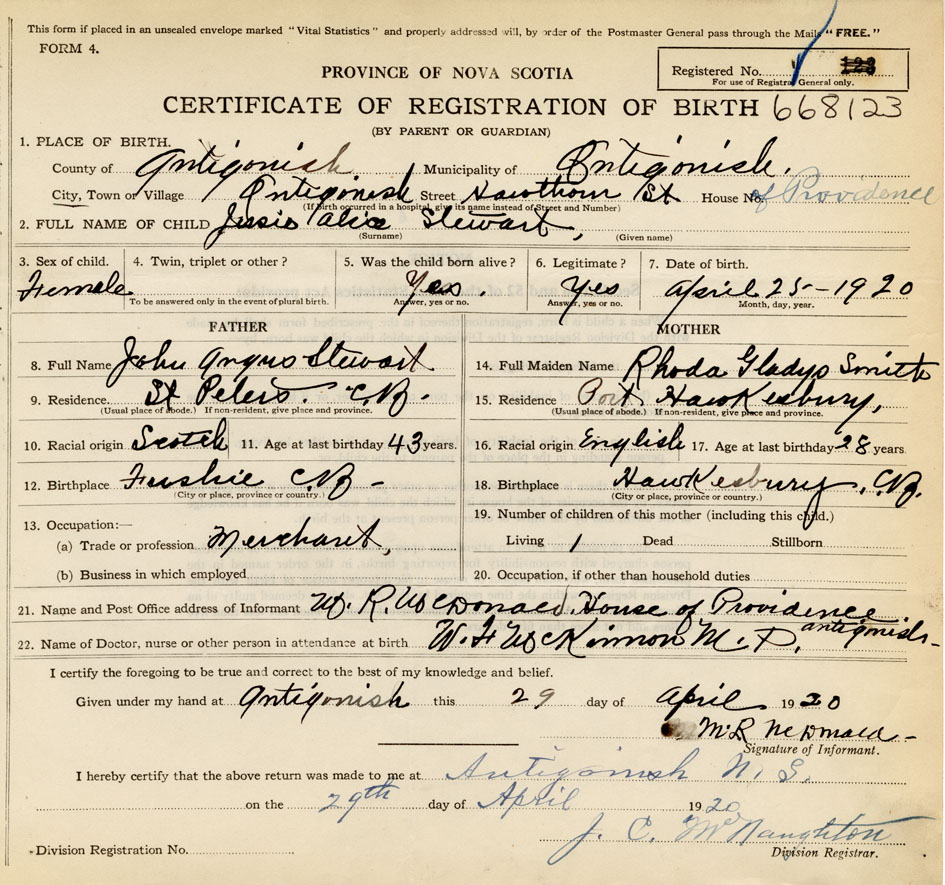 This form if placed in an unsealed envelope marked "Vital Statistics" and properly addressed will, by order of the Postmaster General pass through the Mails "FREE."
FORM 4.
PROVINCE OF NOVA SCOTIA
Registered No. 123
For use of Registrar General only.
CERTIFICATE OF REGISTRATION OF BIRTH 668123
(BY PARENT OR GUARDIAN)
1. PLACE OF BIRTH.
County of Antigonish Municipality of Antigonish.
City, Town or Village Antigonish Street Hawthorn St House No. of Providence
(If birth occurred in a hospital, give its name instead of Street and Number)
2. FULL NAME OF CHILD Jessie Alice Stewart,
(Surname) (Given name)
3. Sex of child. 4. Twin, triplet or other? 5. Was the child born alive? 6. Legitimate? 7. Date of birth.
Female Yes. Yes April 25-1920
To be answered only in the event of plural birth. Answer, yes or no. Answer, yes or no. Month, day, year.
FATHER MOTHER
8. Full Name John Angus Stewart 14. Full Maiden Name Rhoda Gladys Smith
9. Residence. St Peters. C.B. 15. Residence Port Hawkesbury,
(Usual place of abode.) If non-resident, give place and province. (Usual place of abode.) If non-resident, give place and province.
10. Racial origin Scotch 11. Age at last birthday 43 years. 16. Racial origin English 17. Age at last birthday 28 years.
12. Birthplace C.B. 18. Birthplace Hawkesbury, C.B.
(City or place, province or country.) (City or place, province or country.)
13. Occupation:— 19. Number of children of this mother (including this child.)
(a) Trade or profession Merchant, Living 1 Dead Stillborn
(b) Business in which employed 20. Occupation, if other than household duties
21. Name and Post Office address of Informant R. McDonald House of Providence
Antigonish
22. Name of Doctor, nurse or other person in attendance at birth W. F. McKinnon M.D.
I certify the foregoing to be true and correct to the best of my knowledge and belief.
Given under my hand at Antigonish this 29 day of April 1920
M. R McDonald
Signature of Informant.
I hereby certify that the above return was made to me at Antigonish N. S.
on the 29th day of April 1920
J. C. McNaughton
Division Registration No. Division Registrar.